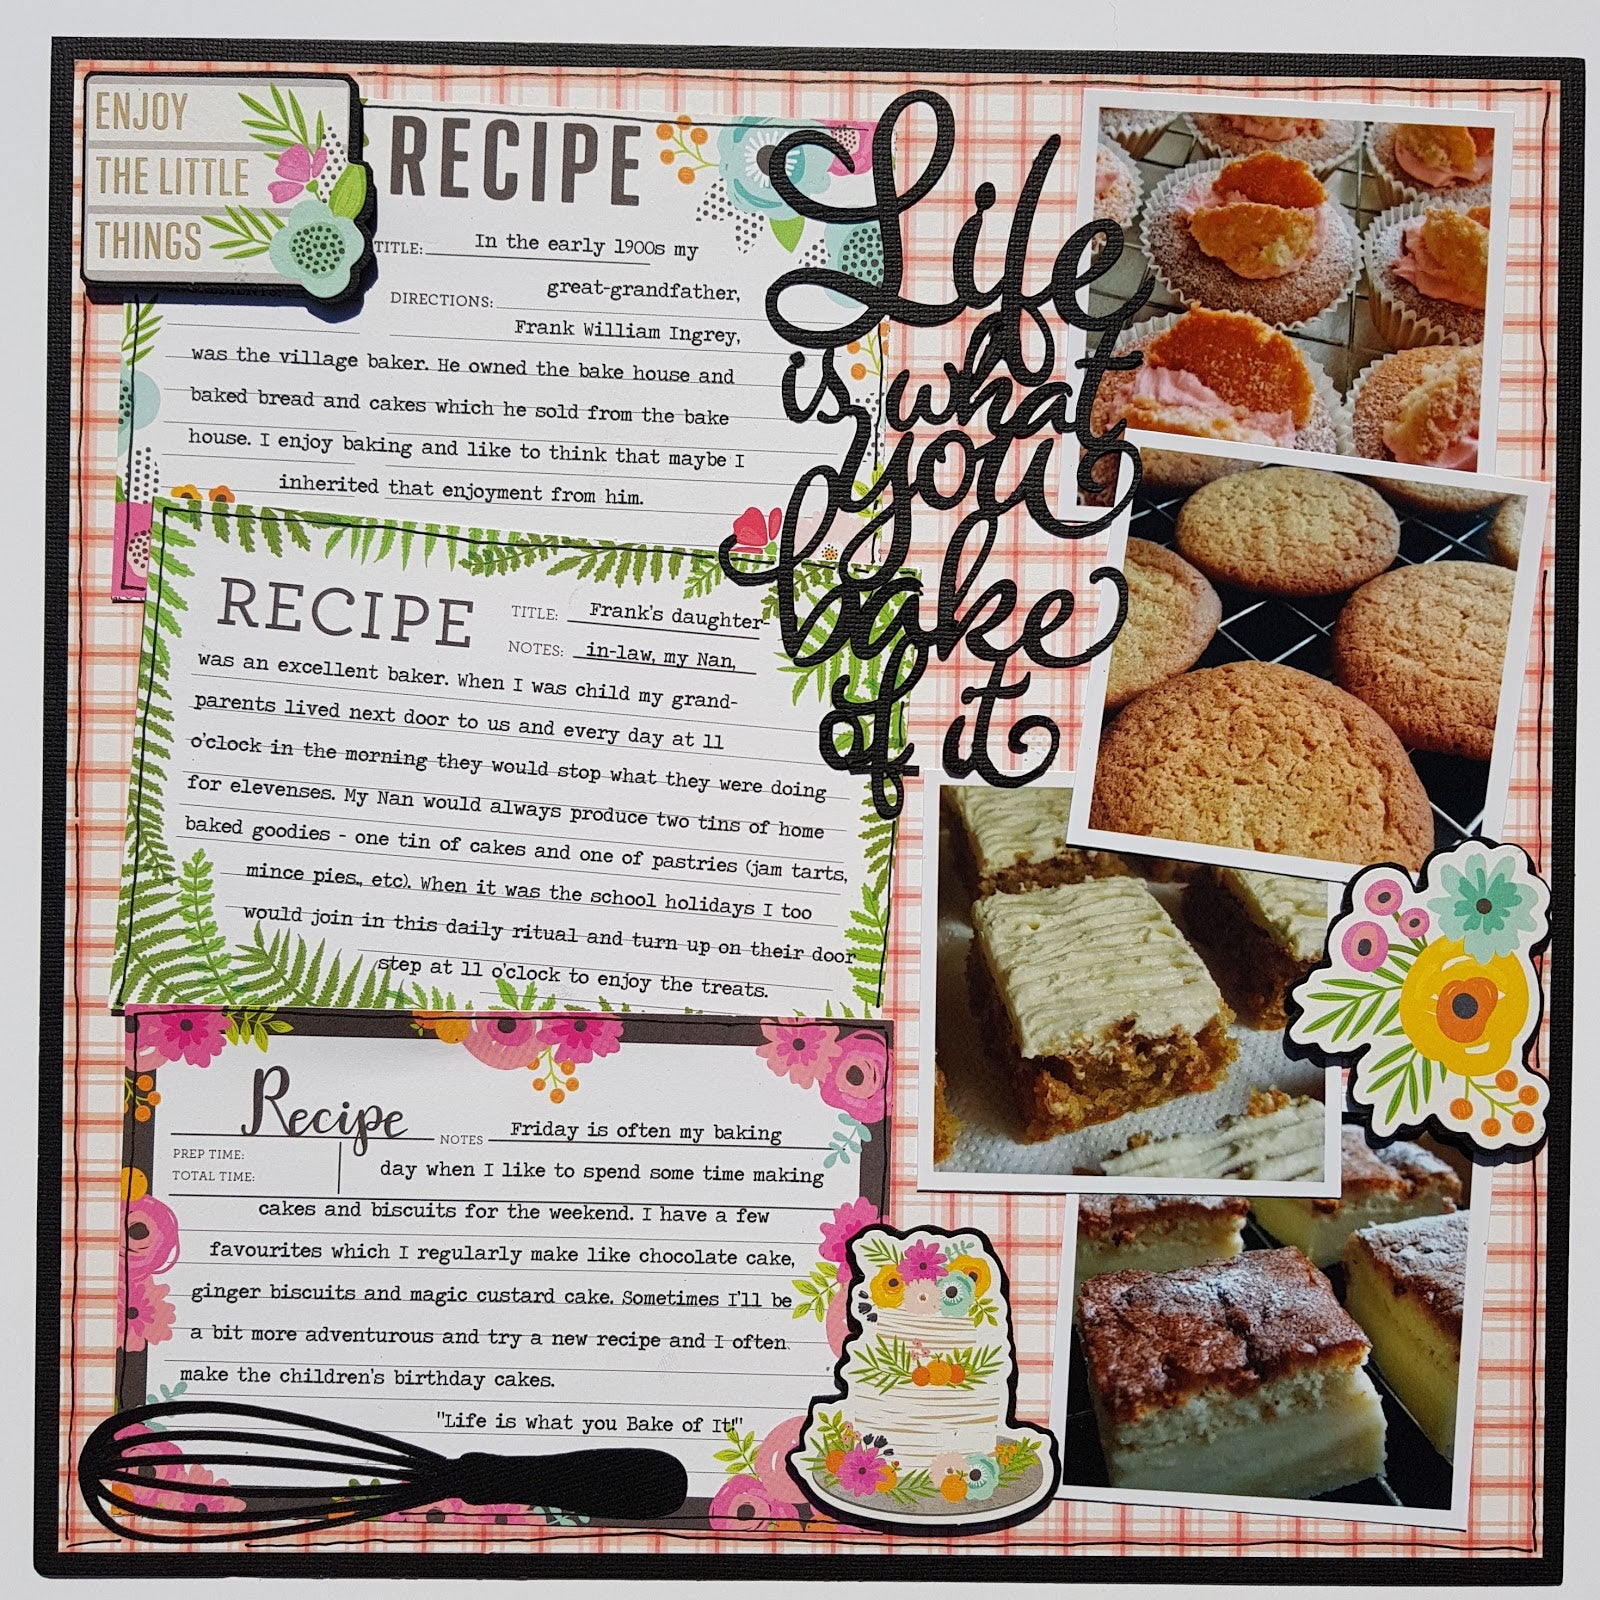 ENJOY
THE LITTLE
THINGS
RECIPE
TITLE: In the early 1900s my
great-grandfather,
DIRECTIONS:
Frank William Ingrey,
was the village baker. He owned the bake house and
baked bread and cakes which he sold from the bake
house. I enjoy baking and like to think that maybe I
inherited that enjoyment from him.
Life
is what
you
bake
of it
RECIPE
TITLE: Frank's daughter-
NOTES: in-law, my Nan,
was an excellent baker. When I was child my grand-
parents lived next door to us and every day at 11
o'clock in the morning they would stop what they were doing
for elevenses. My Nan would always produce two tins of home
baked goodies - one tin of cakes and one of pastries (jam tarts,
mince pies, etc). When it was the school holidays I too
would join in this daily ritual and turn up on their door
step at 11 o'clock to enjoy the treats.
Recipe
NOTES Friday is often my baking
PREP TIME:
TOTAL TIME:
day when I like to spend some time making
cakes and biscuits for the weekend. I have a few
favourites which I regularly make like chocolate cake,
ginger biscuits and magic custard cake. Sometimes I'll be
a bit more adventurous and try a new recipe and I often
make the children's birthday cakes.
"Life is what you Bake of It!"